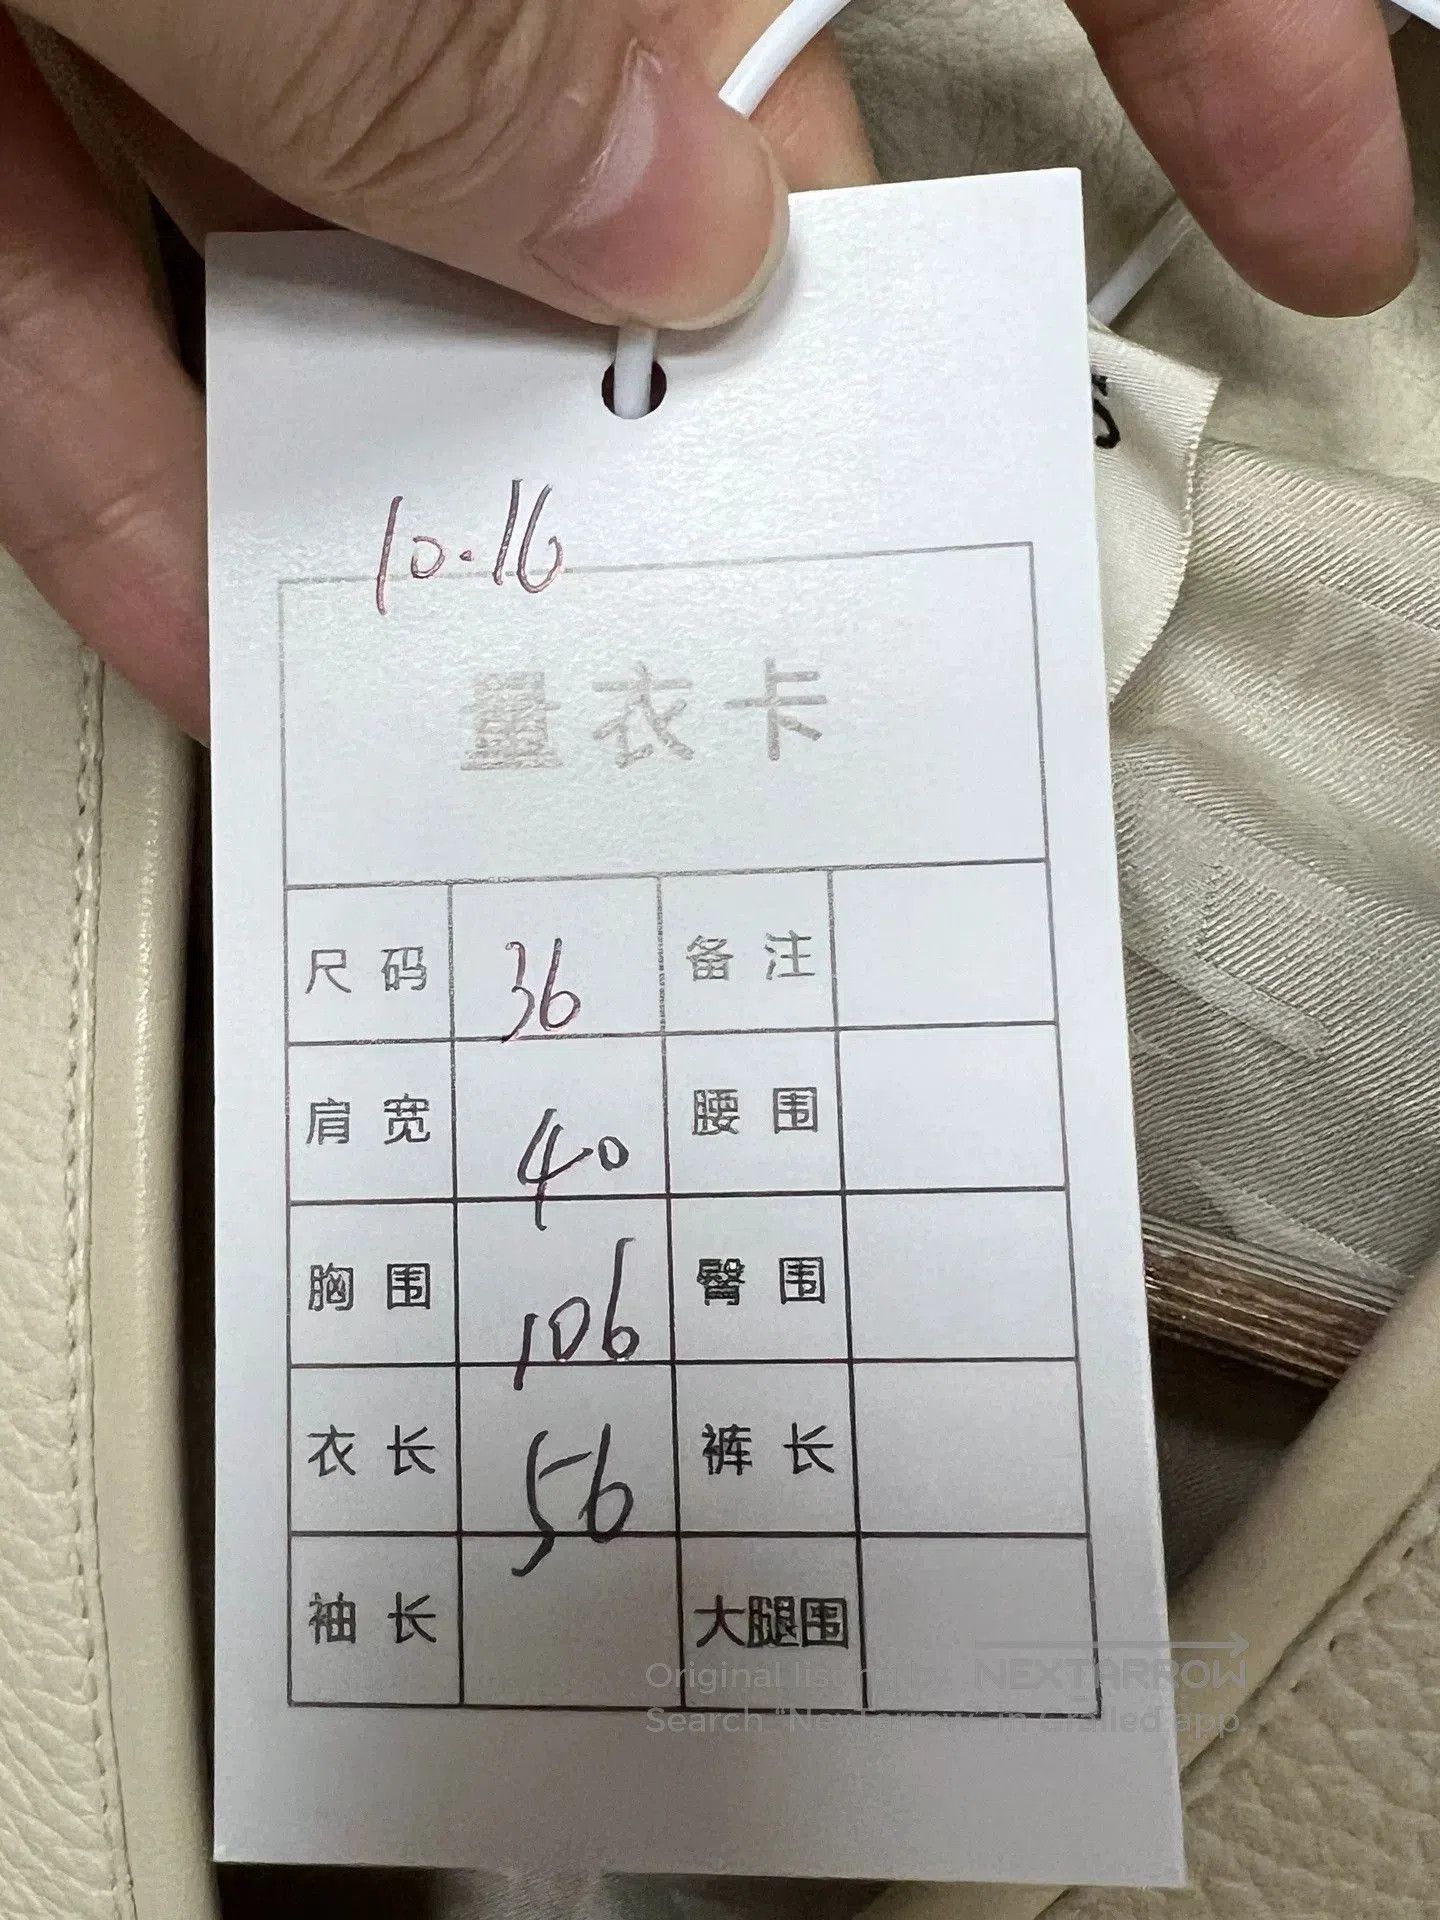 10.16
量衣卡
尺码 36 备注
肩宽 40 腰围
胸围 106 臀围
衣长 56 裤长
袖长 大腿围
Original listing by NEXTARROW
Search "Nextarrow" in Grailed app